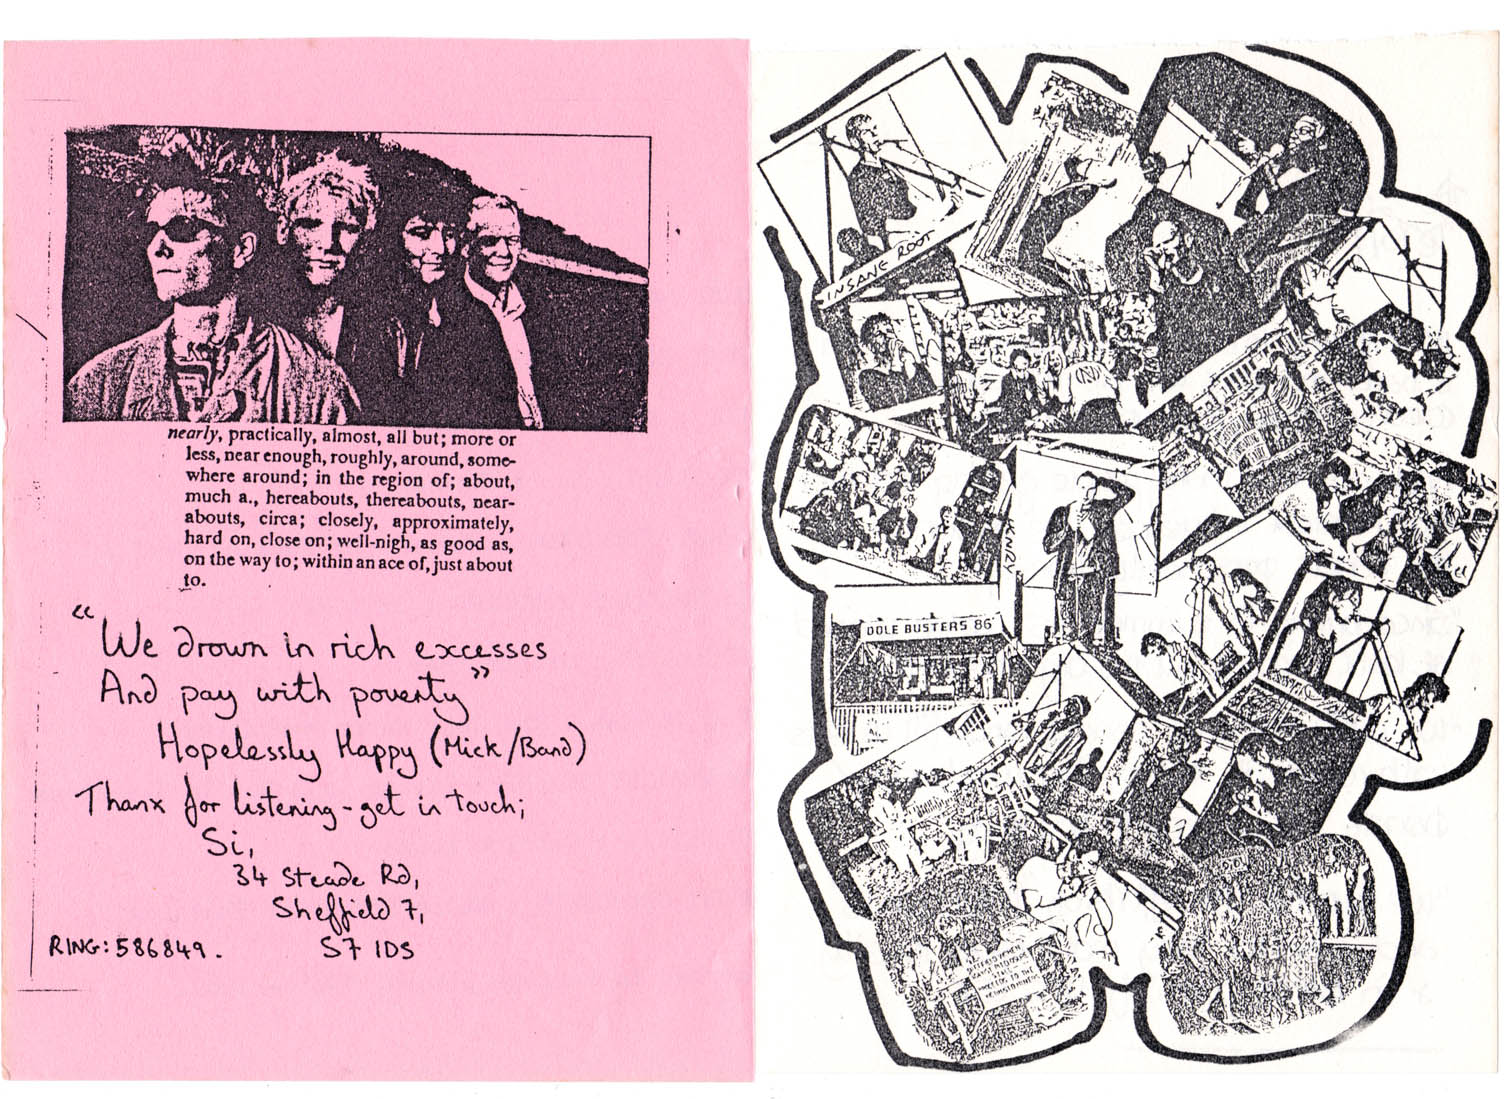 nearly, practically, almost, all but; more or
less, near enough, roughly, around, some-
where around; in the region of; about,
much a., hereabouts, thereabouts, near-
abouts, circa; closely, approximately,
hard on, close on; well-nigh, as good as,
on the way to; within an ace of, just about
to.
"We drown in rich excesses
And pay with poverty"
Hopelessly Happy (Mick/Band)
Thanx for listening - get in touch;
Si,
34 Steade Rd,
Sheffield 7,
S7 1DS
RING: 586849.
INSANE ROOT
DOLE BUSTERS 86'